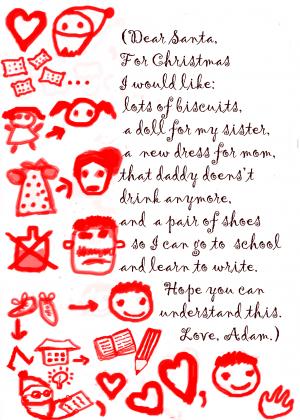 (Dear Santa,
For Christmas
I would like:
lots of biscuits,
a doll for my sister,
a new dress for mom,
that daddy doens't
drink anymore,
and a pair of shoes
so I can go to school
and learn to write.
Hope you can
understand this.
Love, Adam.)